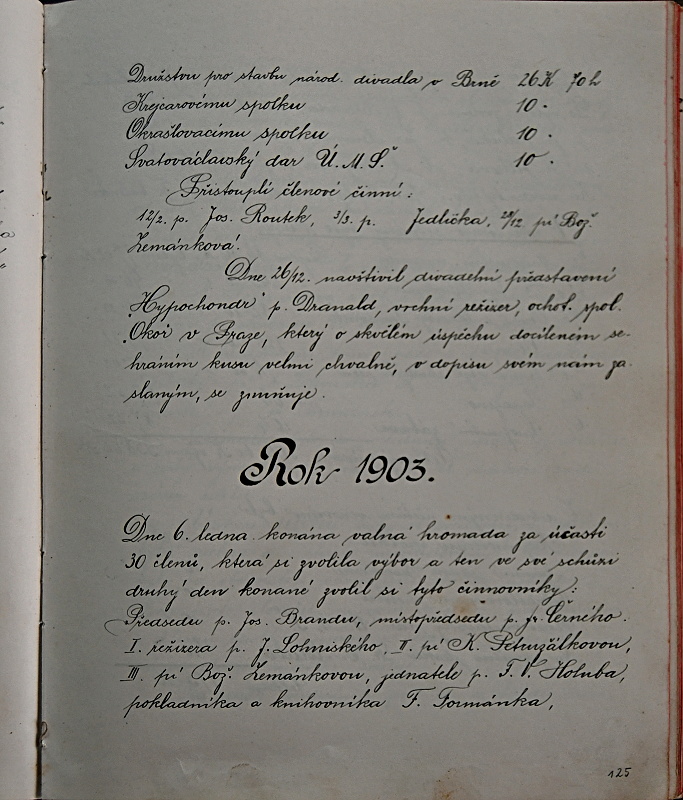 Družstvu pro stavbu národ. divadla v Brně 26K 70h
Krejcarovému spolku 10 .
Okrašlovacímu spolku 10 .
Svatováclavský dar Ú.M.Š. 10 .
Přistouplí členové činní :
12/2. p. Jos. Routek, 3/3. p. Jedlička, 28/12. pí Bož.
Zemánková.
Dne 26/12. navštívil divadelní představení
"Hypochondr" p. Dranald, vrchní režizer, ochot. spol.
"Okoř" v Praze, který o skvělém úspěchu docíleném se-
hráním kusu velmi chvalně, v dopisu svém nám za-
slaným, se zmiňuje.
Rok 1903.
Dne 6. ledna konána valná hromada za účasti
30 členů, která si zvolila výbor a ten ve své schůzi
druhý den konané zvolil si tyto činnovníky :
Předsedu p. Jos. Brandu, místopředsedu p. fr. Černého.
I. režizera p. J. Lohniského, II. pí K. Peturzálkovou,
III. pí Bož. Zemánkovou, jednatele p. F. V. Holuba,
pokladníka a knihovníka F. Formánka,
125